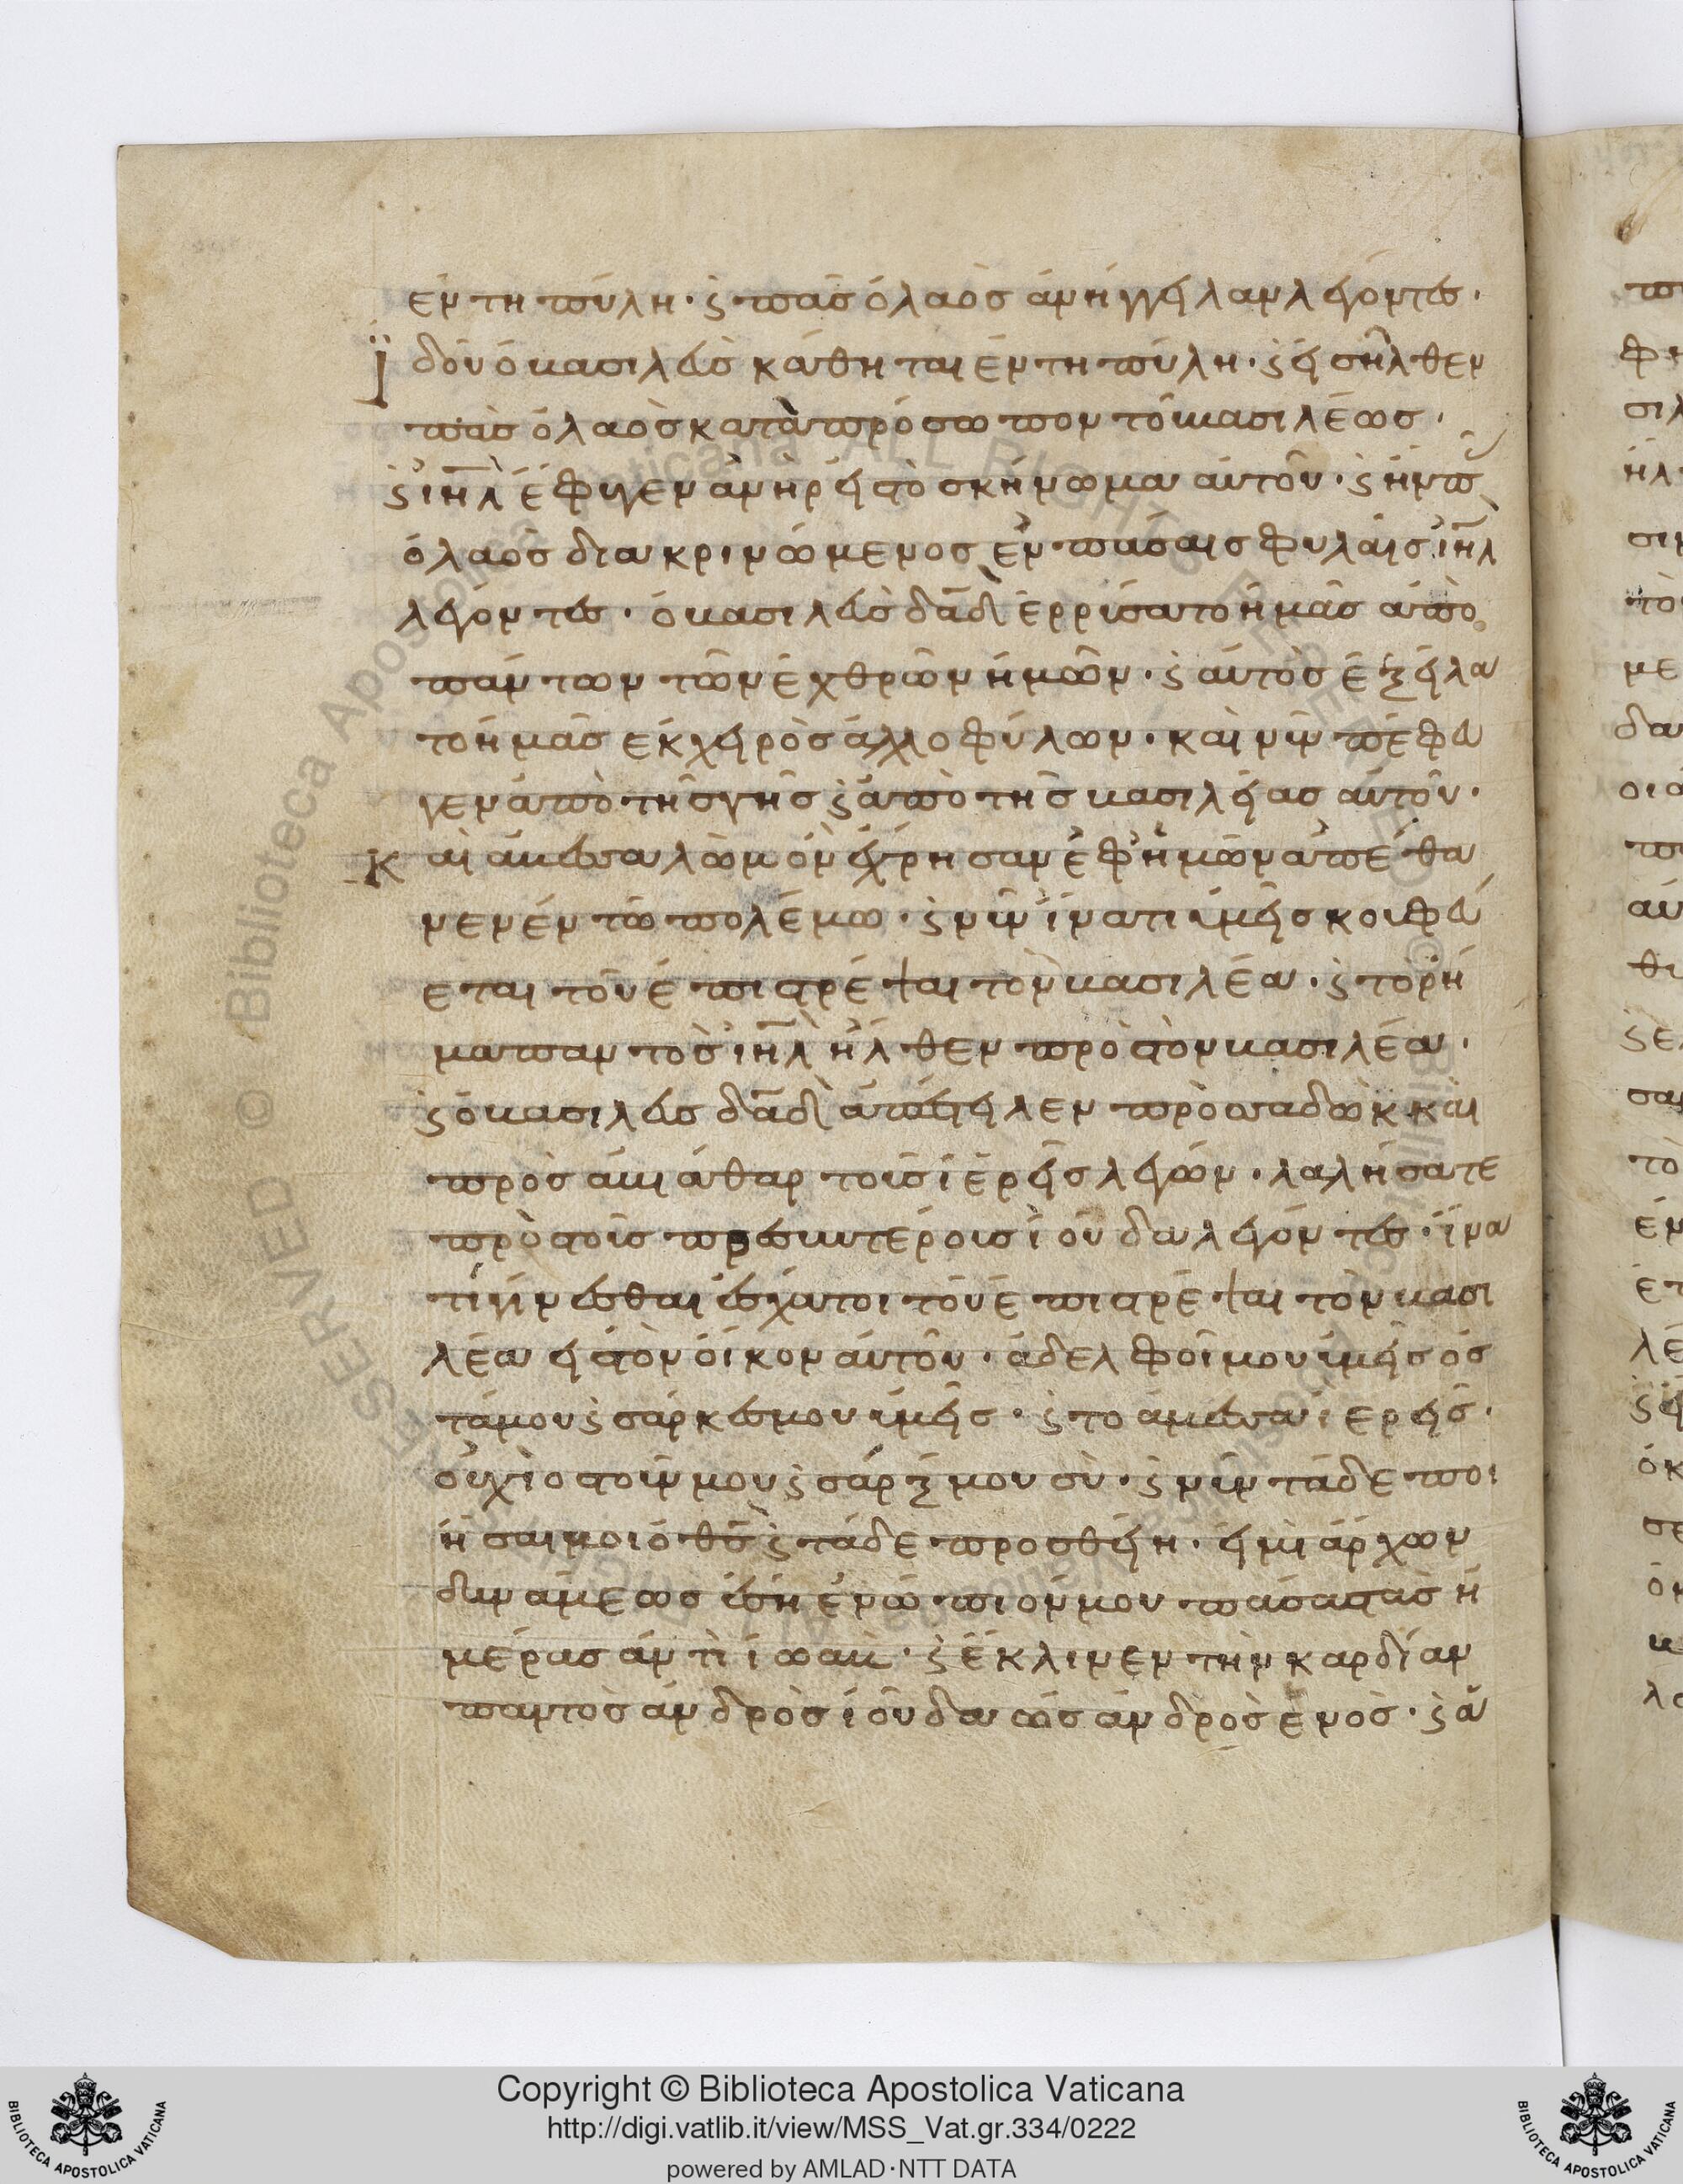 ἐν τη πύλη · ϛ πᾶσ ὁ λαὸσ ἀνήγγειλαν λέγοντεσ ·
Ἰδοὺ ὁ βασιλεὺσ κάθηται ἐν τη πύλη · ϛ εἰσῆλθεν
πᾶσ ὁ λαὸσ κατὰ πρόσωπον τοῦ βασιλέωσ ·
ϛ ἰηλ ἔφυγεν ἀνὴρ εἰσ τὸ σκήνωμα αὐτοῦ · ϛ ἦν π
ὁ λαὸσ διακρινώμενοσ ἐν πάσαισ φυλαῖσ ἰηλ
λέγοντεσ · ὁ βασιλεὺσ δαδ ἐρρύσατο ἡμᾶσ ἀπὸ
πάντων τῶν ἐχθρῶν ἡμῶν · ϛ αὐτὸσ ἐξείλα
το ἡμᾶσ ἐκ χειρὸσ ἀλλοφύλων · καὶ νῦν πέφευ
γεν ἀπὸ τῆσ γῆσ ϛ ἀπὸ τῆσ βασιλείασ αὐτοῦ ·
Καὶ ἀβεσσαλὼμ ὃν ἐχρησαν ἐφ ἡμῶν ἀπέθα
νεν ἐν τῶ πολέμω · ϛ νῦν ἵνα τι ὑμεῖσ κουφεύ
εται τοῦ ἐπιστρέψαι τὸν βασιλέα · ϛ το ρῆ
μα παντὸσ ἰηλ ἦλθεν πρὸσ τὸν βασιλέα ·
ϛ ὁ βασιλεὺσ δαδ ἀπέστειλεν πρὸσ σαδὼκ καὶ
πρὸσ ἀβιάθαρ τοὺσ ἱερεῖσ λέγων · λαλήσατε
πρὸσ τοὺσ πρεσβυτέρουσ ἰούδα λέγοντεσ · ἵνα
τί γίνεσθαι ἔσχατοι τοῦ ἐπιστρέψαι τὸν βασι
λέα εἰσ τὸν οἶκον αὐτοῦ · ἀδελφοί μου ὑμεῖσ ὀσ
τά μου ϛ σάρκεσ μου ὑμεῖσ · ϛ το ἀμεσσαὶ ἐρεῖσ ·
οὐχὶ ὀστοῦν μου ϛ σάρξ μου σὺ · ϛ νῦν τάδε ποι
ήσαι μοι ὁ θσ ϛ τάδε προσθείη · εἰ μὴ ἄρχων
δυνάμεωσ ἔση ἐνώπιόν μου πάσασ τὰσ ἡ
μέρασ ἀντὶ ἰωαβ · ϛ ἔκλινεν τὴν καρδίαν
παντὸσ ἀνδρὸσ ἰούδα ὡσ ἀνδρὸσ ἑνὸσ · ϛ ἀ
Copyright © Biblioteca Apostolica Vaticana
http://digi.vatlib.it/view/MSS_Vat.gr.334/0222
powered by AMLAD·NTT DATA